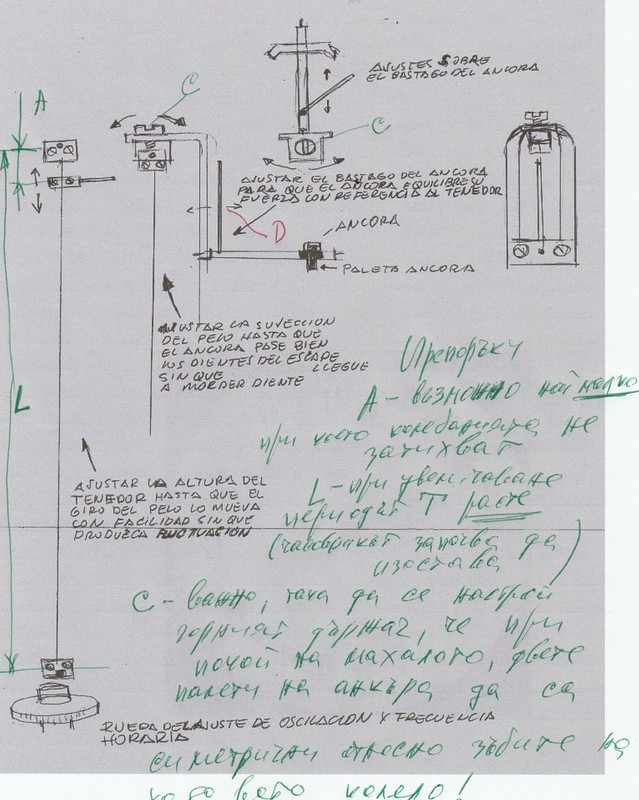 C
A
AJUSTES SOBRE
EL BASTAGO DEL ANCORA
C
AJUSTAR EL BASTAGO DEL ANCORA
PARA QUE EL ANCORA EQUILIBRE SU
FUERZA CON REFERENCIA AL TENEDOR
D
ANCORA
PALETA ANCORA
AJUSTAR LA SUJECCION
DEL PELO HASTA QUE
EL ANCORA PASE BIEN
LOS DIENTES DEL ESCAPE
SIN QUE LLEGUE
A MORDER DIENTE
L
AJUSTAR LA ALTURA DEL
TENEDOR HASTA QUE EL
GIRO DEL PELO LO MUEVA
CON FACILIDAD SIN QUE
PRODUZCA FLUTUACION
Препоръки
A - възможно най малко
при което колебанията не
затихват
L - при увеличаване
периодът T расте
(часовникът започва да
изостава)
C - важно, така да се настрои
горният държач, че при
покой на махалото, двете
палети на анкъра да са
RUEDA DEL AJUSTE DE OSCILACION Y FRECUENCIA
HORARIA
симетрични относно зъбите на
колело!